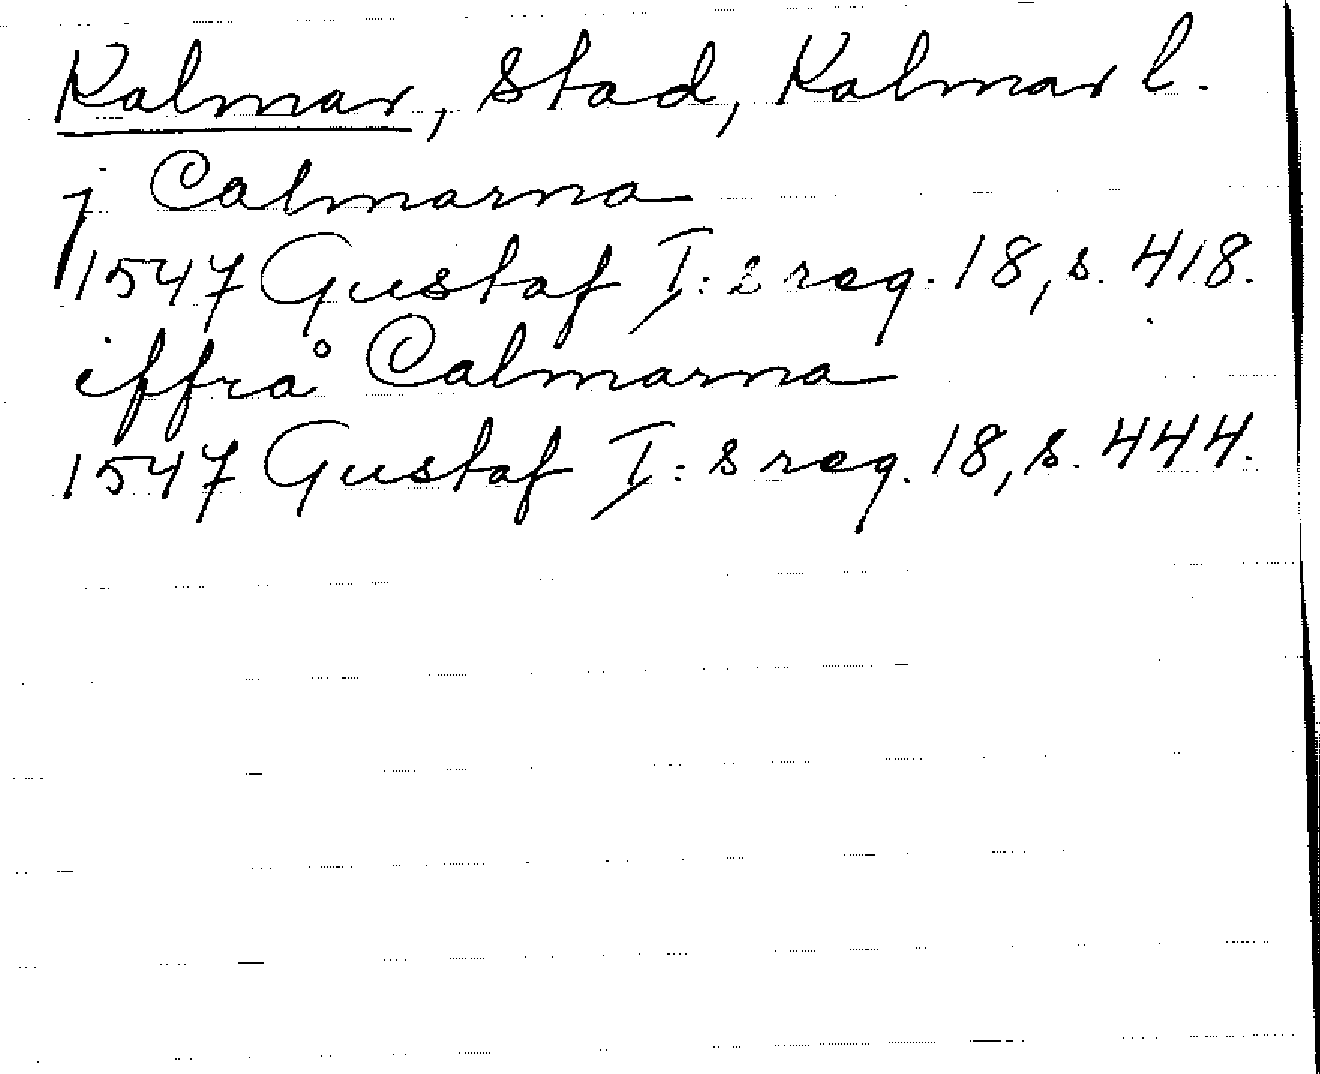 Kalmar, Stad, Kalmar l.
j Calmarna
1547 Gustaf I:s reg. 18, s. 418.
iffrå Calmarna
1547 Gustaf I:s reg. 18, s. 444.